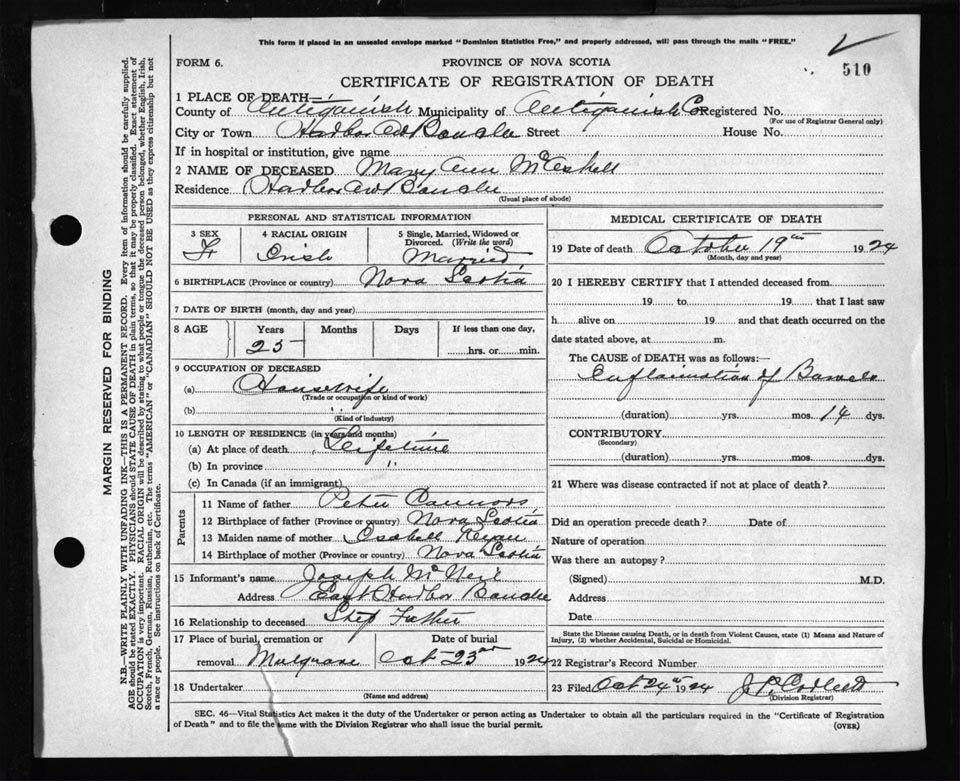 This form if placed in an unsealed envelope marked "Dominion Statistics Free," and properly addressed, will pass through the mails "FREE."
510
FORM 6.
PROVINCE OF NOVA SCOTIA
CERTIFICATE OF REGISTRATION OF DEATH
1 PLACE OF DEATH—
County of Antigonish Municipality of Antigonish Co Registered No.
(For use of Registrar General only)
City or Town Harbor Au Bouche Street House No.
If in hospital or institution, give name
2 NAME OF DECEASED Mary Ann McCaskell
Residence Harbor Au Bouche
(Usual place of abode)
PERSONAL AND STATISTICAL INFORMATION
3 SEX 4 RACIAL ORIGIN 5 Single, Married, Widowed or Divorced. (Write the word)
F Irish Married
6 BIRTHPLACE (Province or country) Nova Scotia
7 DATE OF BIRTH (month, day and year)
8 AGE Years Months Days If less than one day,
25 hrs. or min.
9 OCCUPATION OF DECEASED
(a) Housewife
(Trade or occupation or kind of work)
(b) "
(Kind of industry)
10 LENGTH OF RESIDENCE (in years and months)
(a) At place of death Lifetime
(b) In province "
(c) In Canada (if an immigrant)
Parents
11 Name of father Peter Connors
12 Birthplace of father (Province or country) Nova Scotia
13 Maiden name of mother Isabell Ryan
14 Birthplace of mother (Province or country) Nova Scotia
15 Informant's name Joseph McNeil
Address East Harbor Bouche
16 Relationship to deceased Step Father
17 Place of burial, cremation or removal Mulgrave Date of burial Oct 23rd 1924
18 Undertaker
(Name and address)
MEDICAL CERTIFICATE OF DEATH
19 Date of death October 19th 1924
(Month, day and year)
20 I HEREBY CERTIFY that I attended deceased from
19 to 19 that I last saw
h alive on 19 and that death occurred on the
date stated above, at m.
The CAUSE of DEATH was as follows:—
Inflaimation of Bowels
(duration) yrs. mos. 14 dys.
CONTRIBUTORY
(Secondary)
(duration) yrs. mos. dys.
21 Where was disease contracted if not at place of death?
Did an operation precede death? Date of
Nature of operation
Was there an autopsy?
(Signed) M.D.
Address
Date
State the Disease causing Death, or in death from Violent Causes, state (1) Means and Nature of
Injury, (2) whether Accidental, Suicidal or Homicidal.
22 Registrar's Record Number
23 Filed Oct 24th 1924 J. P.
(Division Registrar)
SEC. 46—Vital Statistics Act makes it the duty of the Undertaker or person acting as Undertaker to obtain all the particulars required in the "Certificate of Registration
of Death" and to file the same with the Division Registrar who shall issue the burial permit.
(OVER)
MARGIN RESERVED FOR BINDING
N.B.—WRITE PLAINLY WITH UNFADING INK—THIS IS A PERMANENT RECORD. Every item of information should be carefully supplied.
AGE should be stated EXACTLY. PHYSICIANS should STATE CAUSE OF DEATH in plain terms, so that it may be properly classified. Exact statement of
OCCUPATION is very important. RACIAL ORIGIN will be described by stating to what people or tongue the deceased person belonged, whether English, Irish,
Scotch, French, German, Russian, Ruthenian, etc. The terms "AMERICAN" or "CANADIAN" SHOULD NOT BE USED as they express citizenship but not
a race or people. See instructions on back of Certificate.